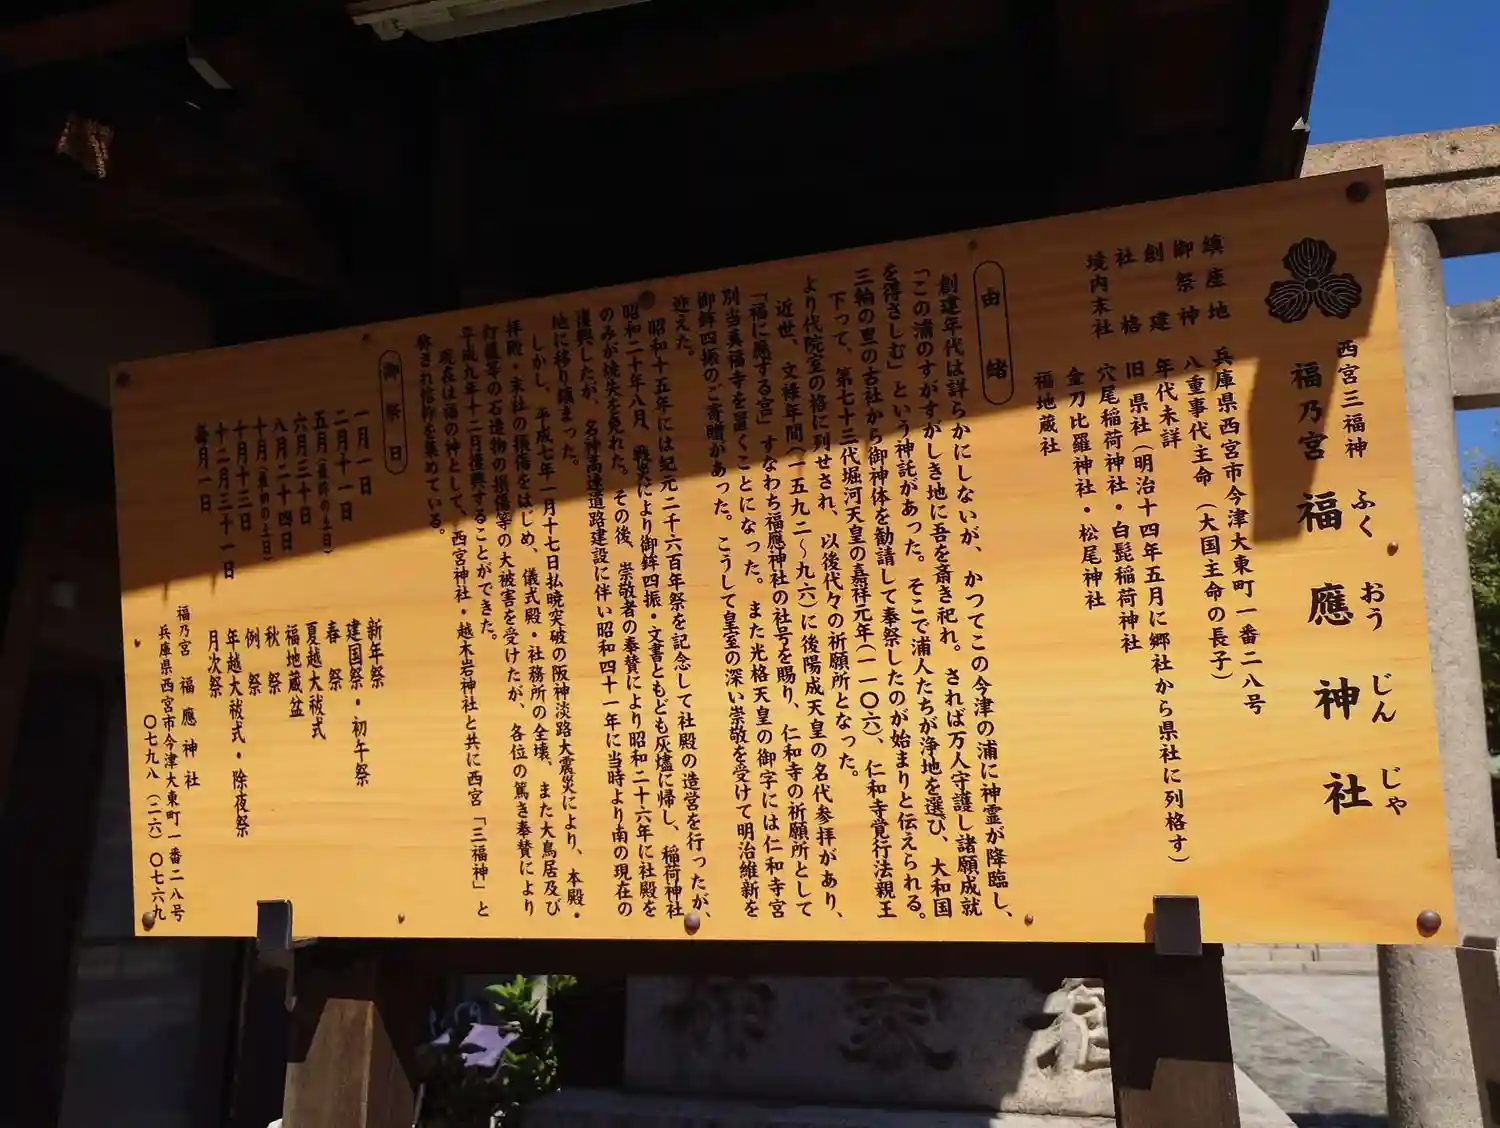 西宮三福神
福乃宮 福應神社
ふく おう じん じゃ
鎮座地 兵庫県西宮市今津大東町一番二八号
御祭神 八重事代主命(大国主命の長子)
創建 年代未詳
社格 旧県社(明治十四年五月に郷社から県社に列格す)
境内末社 穴尾稲荷神社・白髭稲荷神社
金刀比羅神社・松尾神社
福地蔵社
由緒
創建年代は詳らかにしないが、かつてこの今津の浦に神霊が降臨し、
「この浦のすがすがしき地に吾を斎き祀れ。されば万人守護し諸願成就
を得さしむ」という神託があった。そこで浦人たちが浄地を選び、大和国
三輪の里の古社から御神体を勧請して奉祭したのが始まりと伝えられる。
下って、第七十三代堀河天皇の嘉祥元年(一一〇六)、仁和寺覚行法親王
より代院室の格に列せされ、以後代々の祈願所となった。
近世、文禄年間(一五九二〜九六)に後陽成天皇の名代参拝があり、
「福に應する宮」すなわち福應神社の社号を賜り、仁和寺の祈願所として
別当眞福寺を置くことになった。また光格天皇の御字には仁和寺宮
御鉾四振のご寄贈があった。こうして皇室の深い崇敬を受けて明治維新を
迎えた。
昭和十五年には紀元二千六百年祭を記念して社殿の造営を行ったが、
昭和二十年八月、戦災により御鉾四振・文書ともども灰燼に帰し、稲荷神社
のみが焼失を免れた。その後、崇敬者の奉賛により昭和二十六年に社殿を
復興したが、名神高速道路建設に伴い昭和四十一年に当時より南の現在の
地に移り鎮まった。
しかし、平成七年一月十七日払暁突破の阪神淡路大震災により、本殿・
拝殿・末社の損傷をはじめ、儀式殿・社務所の全壊、また大鳥居及び
灯籠等の石造物の損傷等の大被害を受けたが、各位の篤き奉賛により
平成九年十二月復興することができた。
現在は福の神として、西宮神社・越木岩神社と共に西宮「三福神」と
称され信仰を集めている。
御祭日
一月一日 新年祭
二月十一日 建国祭・初午祭
春祭
五月(最終の土日) 夏越大祓式
六月三十日 福地蔵盆
八月二十四日 秋祭
十月(最初の土日) 例祭
十月十三日 年越大祓式・除夜祭
十二月三十一日 月次祭
毎月一日
福乃宮 福應神社
兵庫県西宮市今津大東町一番二八号
〇七九八(二六)〇七六九